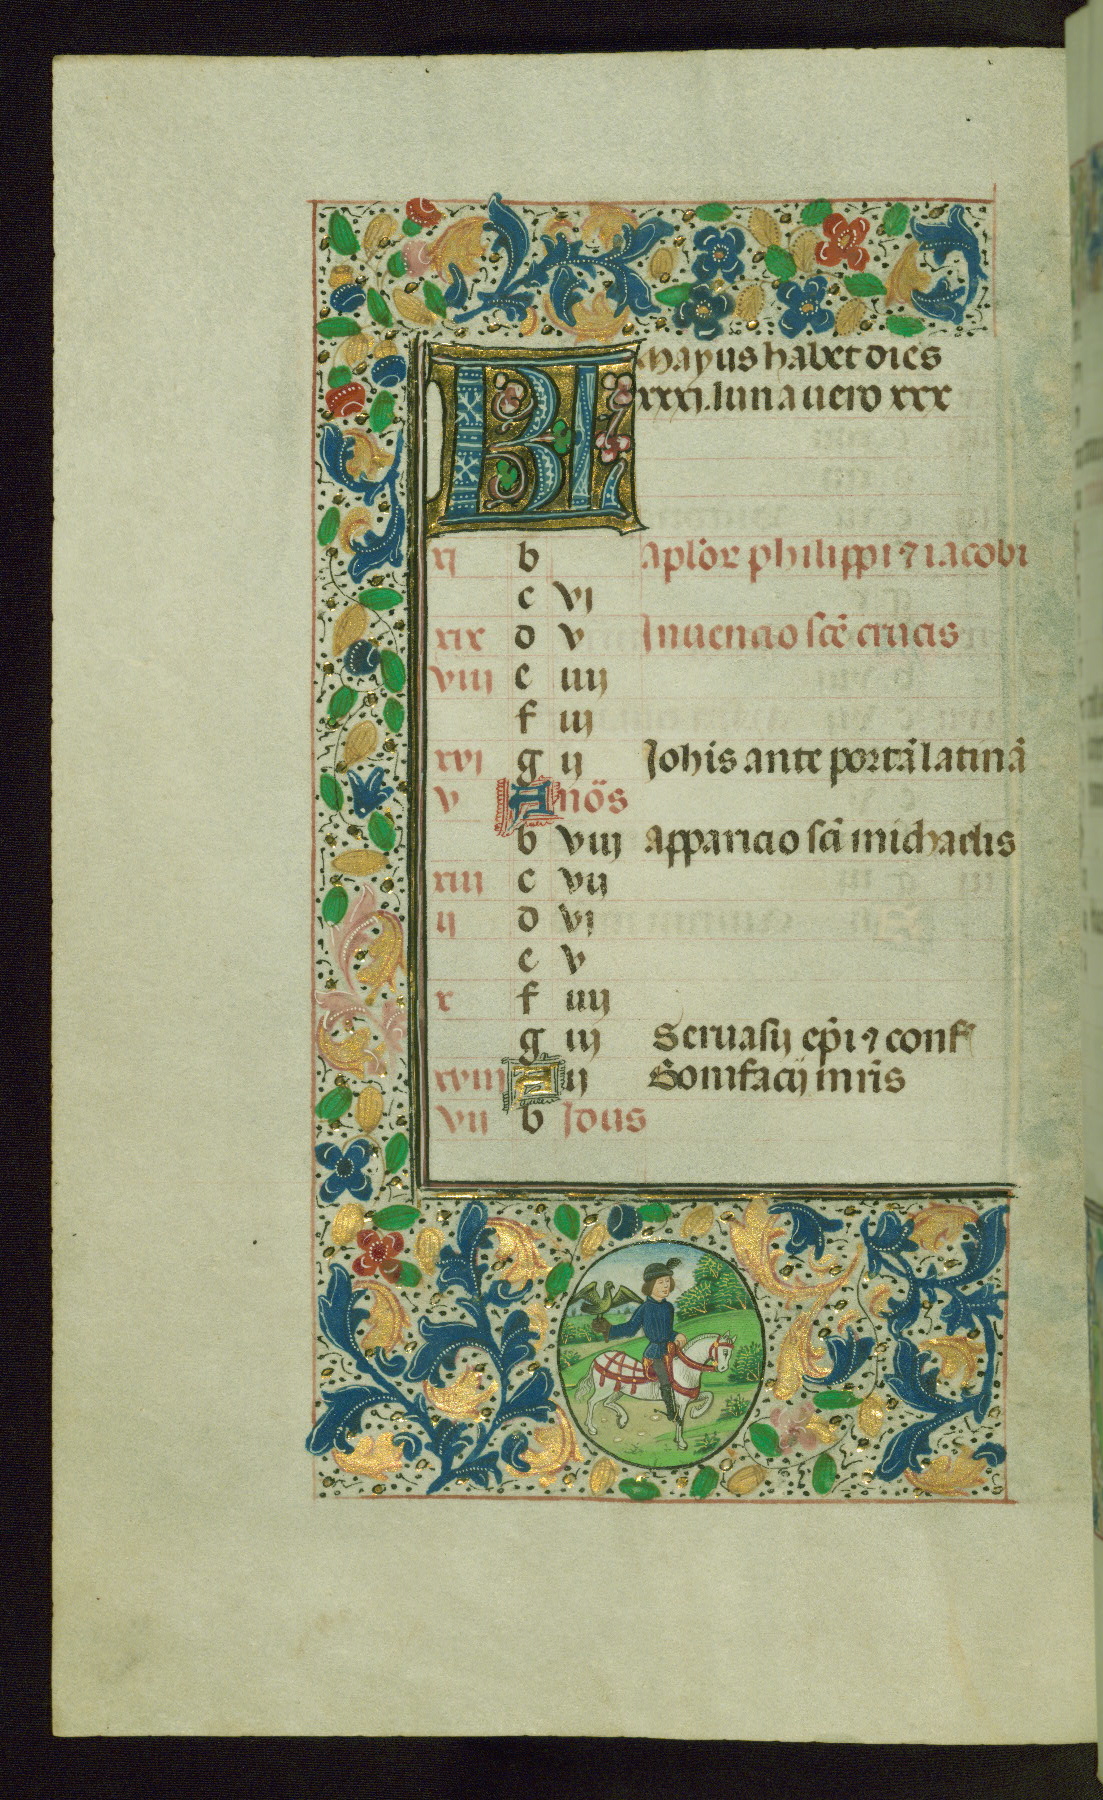 KL mayus habet dies
xxxj. luna uero xxx
xj b aplor̄ philippi ⁊ iacobi
c vj
xix d v Inuencio scē crucis
viij e iiij
f iij
xvj g ij Johis ante portā latinā
v A nōs
b viij Apparicio scī michaelis
xiij c vij
ij d vj
e v
x f iiij
g iij Seruasij epī ⁊ conf
xviij A ij Bonifacij mr̄is
vij b Idus